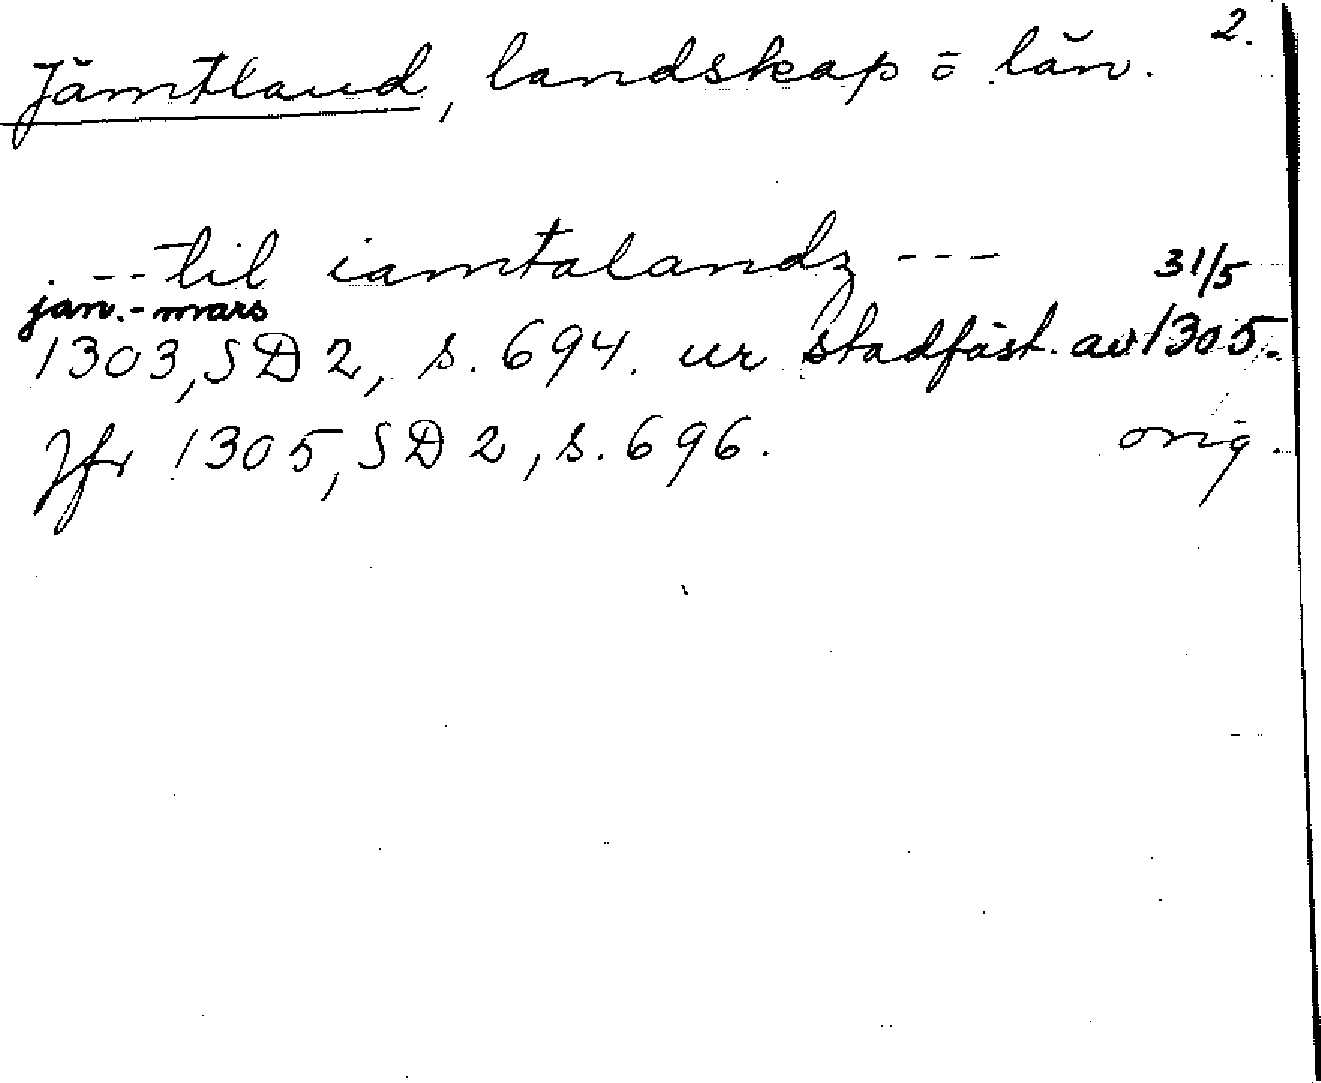 2.
Jämtland, landskap o. län.
--- til iamtalandz --- 31/5
jan.-mars
1303, SD 2, s. 694. ur stadfäst. av 1305.
Jfr 1305, SD 2, s. 696. orig.